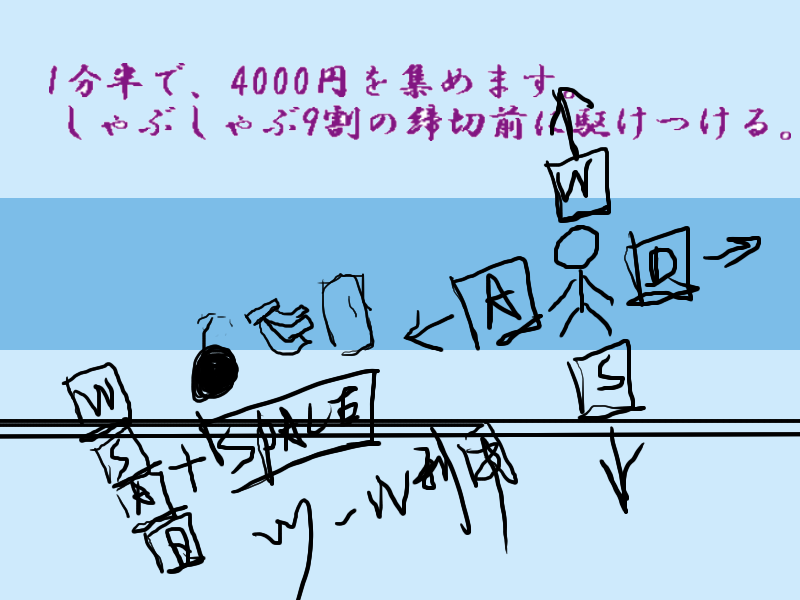 1分半で、4000円を集めます。
しゃぶしゃぶ9割の締切前に駆けつける。
W
A
D
S
W
S
A
D
+
SPACE